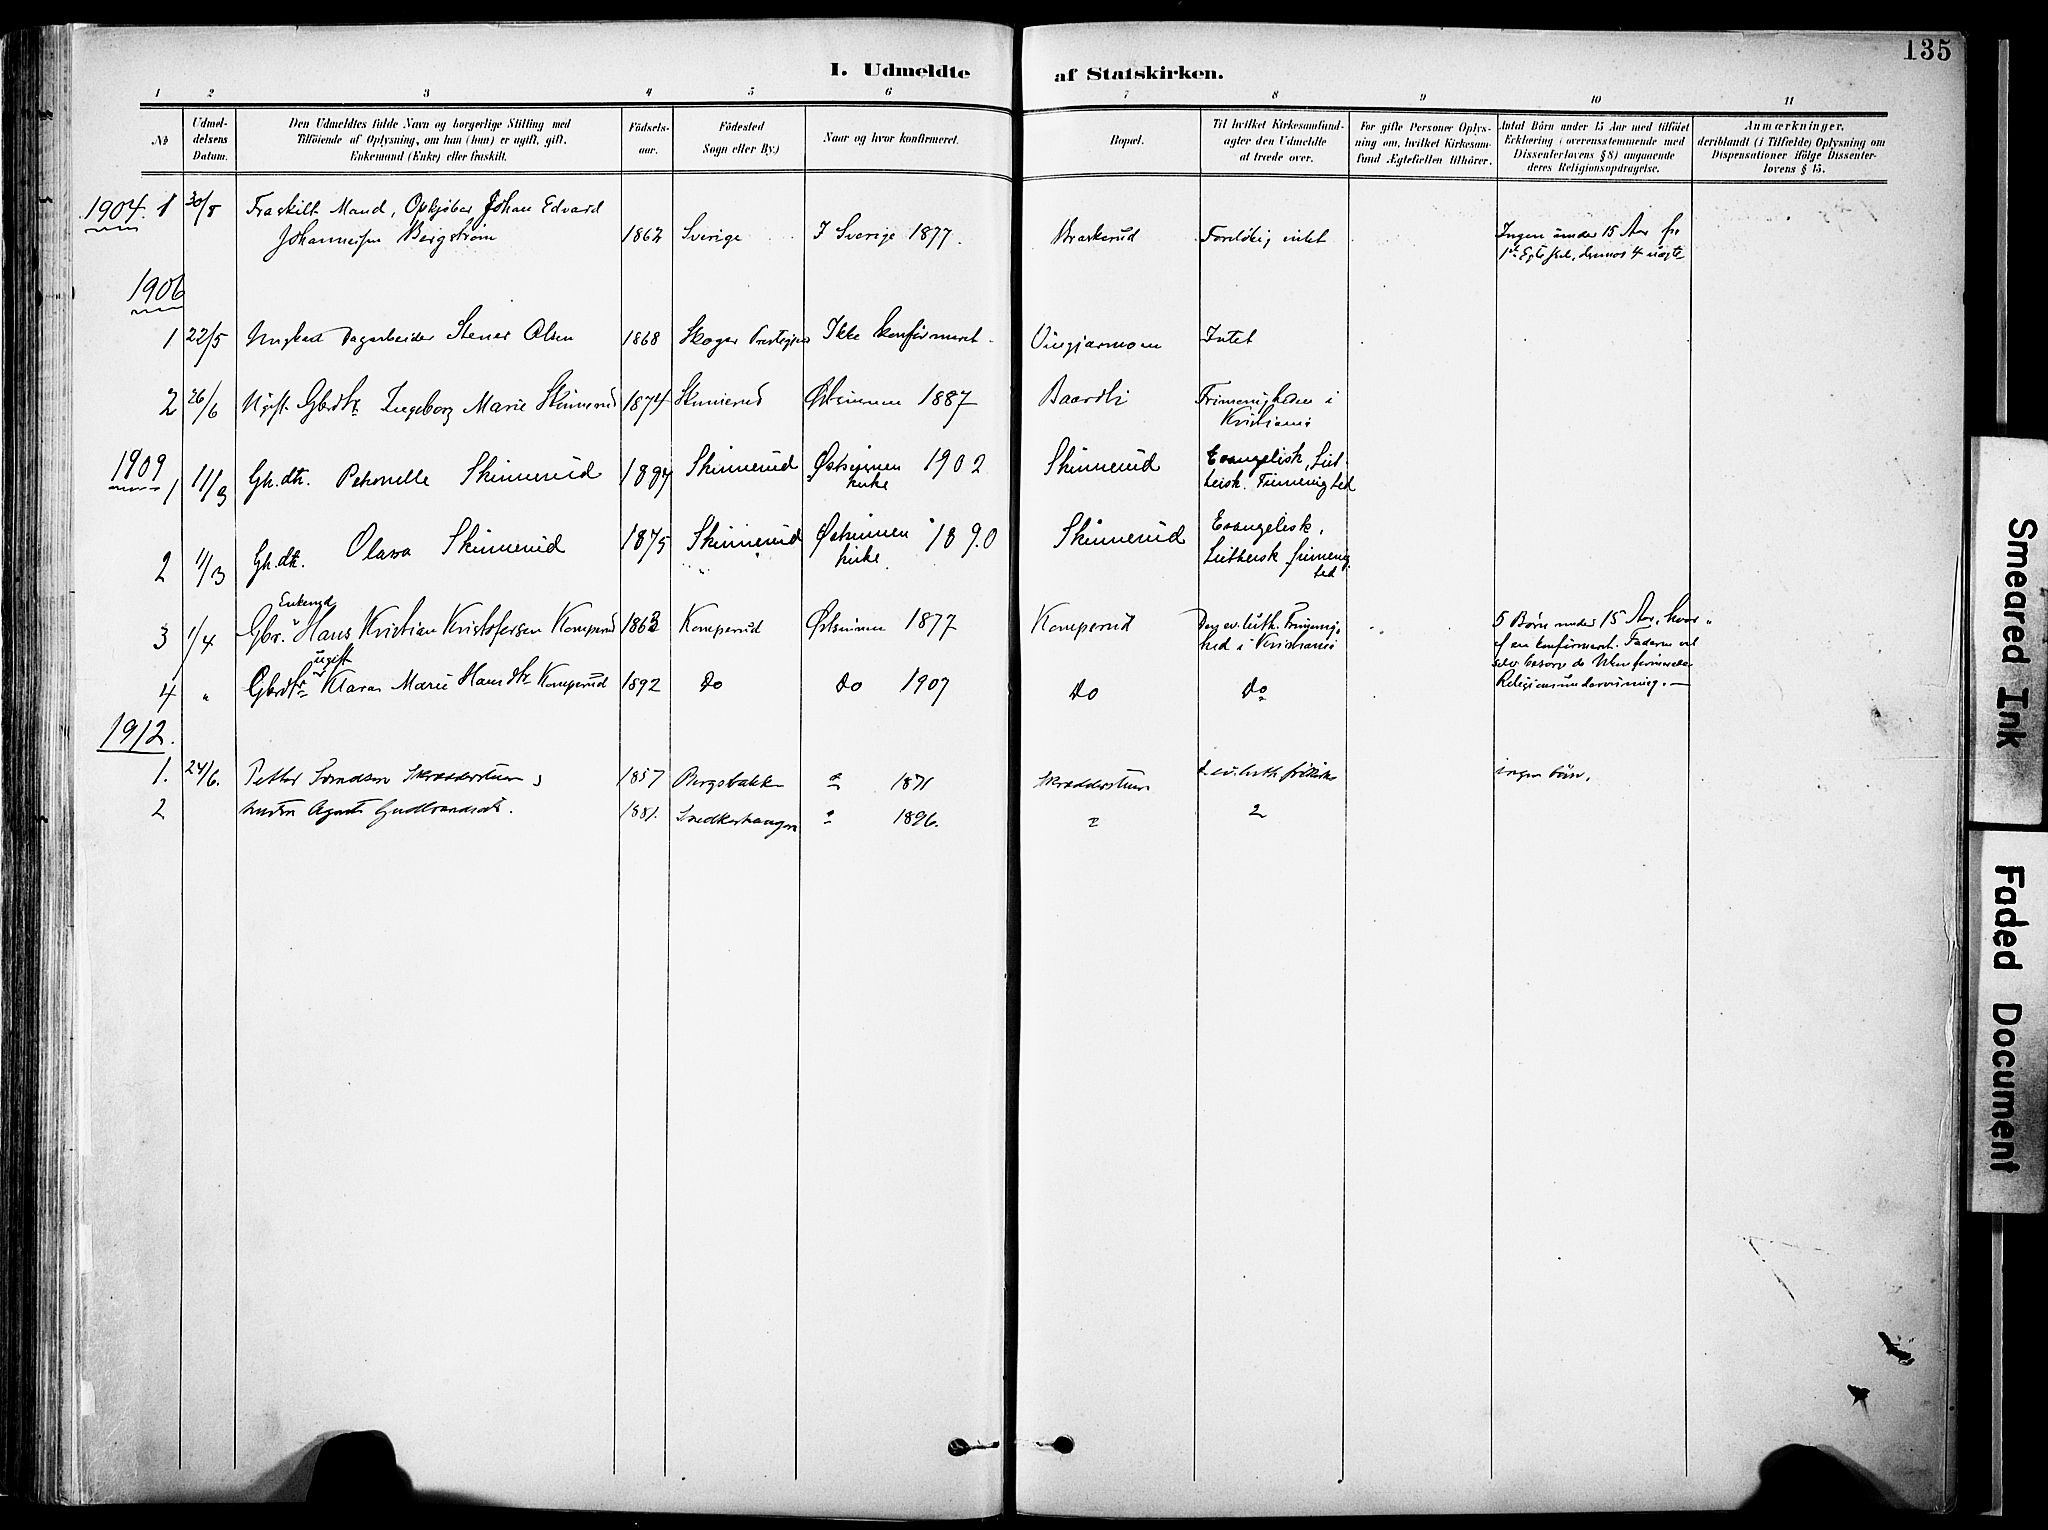 135
I. Udmeldte af Statskirken.
1 2 3 4 5 6 7 8 9 10 11
No
Udmel-
delsens
Datum.
Den Udmeldtes fulde Navn og borgerlige Stilling med
Tilföiende af Oplysning, om han (hun) er ugift, gift,
Enkemand (Enke) eller fraskilt.
Födsels-
aar.
Födested
Sogn eller By.)
Naar og hvor konfirmeret.
Bopæl.
Til hvilket Kirkesamfund-
agter den Udmeldte
at træde over.
For gifte Personer Oplys-
ning om, hvilket Kirkesam-
fund Ægtefællen tilhörer.
Antal Börn under 15 Aar med tilföiet
Erklæring i overensstemmende med
Dissenterlovens § 8) angaaende
deres Religionsopdragelse.
Anmærkninger,
deriblandt (i Tilfælde) Oplysning om
Dispensationer ifölge Dissenter-
lovens § 15.
1904. 1 30/8 Fraskilt Mand, Opkjøber Johan Edvard
Johannesen Bergstrøm 1862 Sverige I Sverige 1877. Braskerud Foreløbig intet Ingen under 15 Aar fra
1ste Egteskab, 4
1906
1 22/5 Ungkarl Dagarbeider Stener Olsen 1868 Skoger Præstegjeld Ikke konfirmeret. Intet
2 26/6 Ugift Gbrdtr. Ingeborg Marie Skinnerud 1874 Skinnerud Østsinnen 1887 Baardli Frimenigheden i
Kristiania
1909
1 11/3 Gb.dtr. Petronelle Skinnerud 1887 Skinnerud Østsinnen 1902 Skinnerud Evangelisk, Lut-
kirke tersk. Frimenighed
2 11/3 Gb.dtr. Olava Skinnerud 1875 Skinnerud Østsinnen 1890 Skinnerud Evangelisk,
kirke Luthersk frimenig
hed
Enkemd
3 1/4 Gbr. Hans Kristian Kristofersen Komperud 1863 Komperud Østsinnen 1877 Komperud Den ev. luth. Frimenig-
hed i Kristiania
5 Børn under 15 Aar, hvor-
af en konfirmeret. Faderen vil
selv besørge de Ukonfirmeredes
Religionsundervisning. —
ugift
4 " Gbrdtr. Klara Marie Hansdtr. Komperud 1892 Do Do 1907 Do Do
1912.
1. 24/6. Petter Skrædderstuen 1857 Bergsbakken " 1871 Skrædderstuen d. ev. luth frikirke ingen børn.
2 hustru Agnete Gudbrandsdt. 1881. Snedkerhaugen " 1896. " "
Smeared Ink
Faded Document